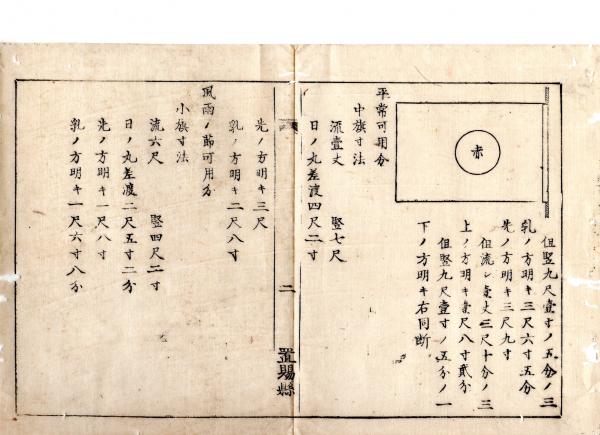 赤
但竪九尺壹寸ノ五分ノ三
乳ノ方明キ三尺六寸五分
先ノ方明キ三尺九寸
但流レ壹丈三尺十分ノ三
上ノ方明キ壹尺八寸貳分
但竪九尺壹寸ノ五分ノ一
下ノ方明キ右同断
平常可用分
中旗寸法
流壹丈 竪七尺
日ノ丸差渡四尺二寸
先ノ方明キ三尺
乳ノ方明キ二尺八寸
風雨ノ節可用分
小旗寸法
流六尺 竪四尺二寸
日ノ丸差渡二尺五寸二分
先ノ方明キ一尺八寸
乳ノ方明キ一尺六寸八分
二
置賜縣